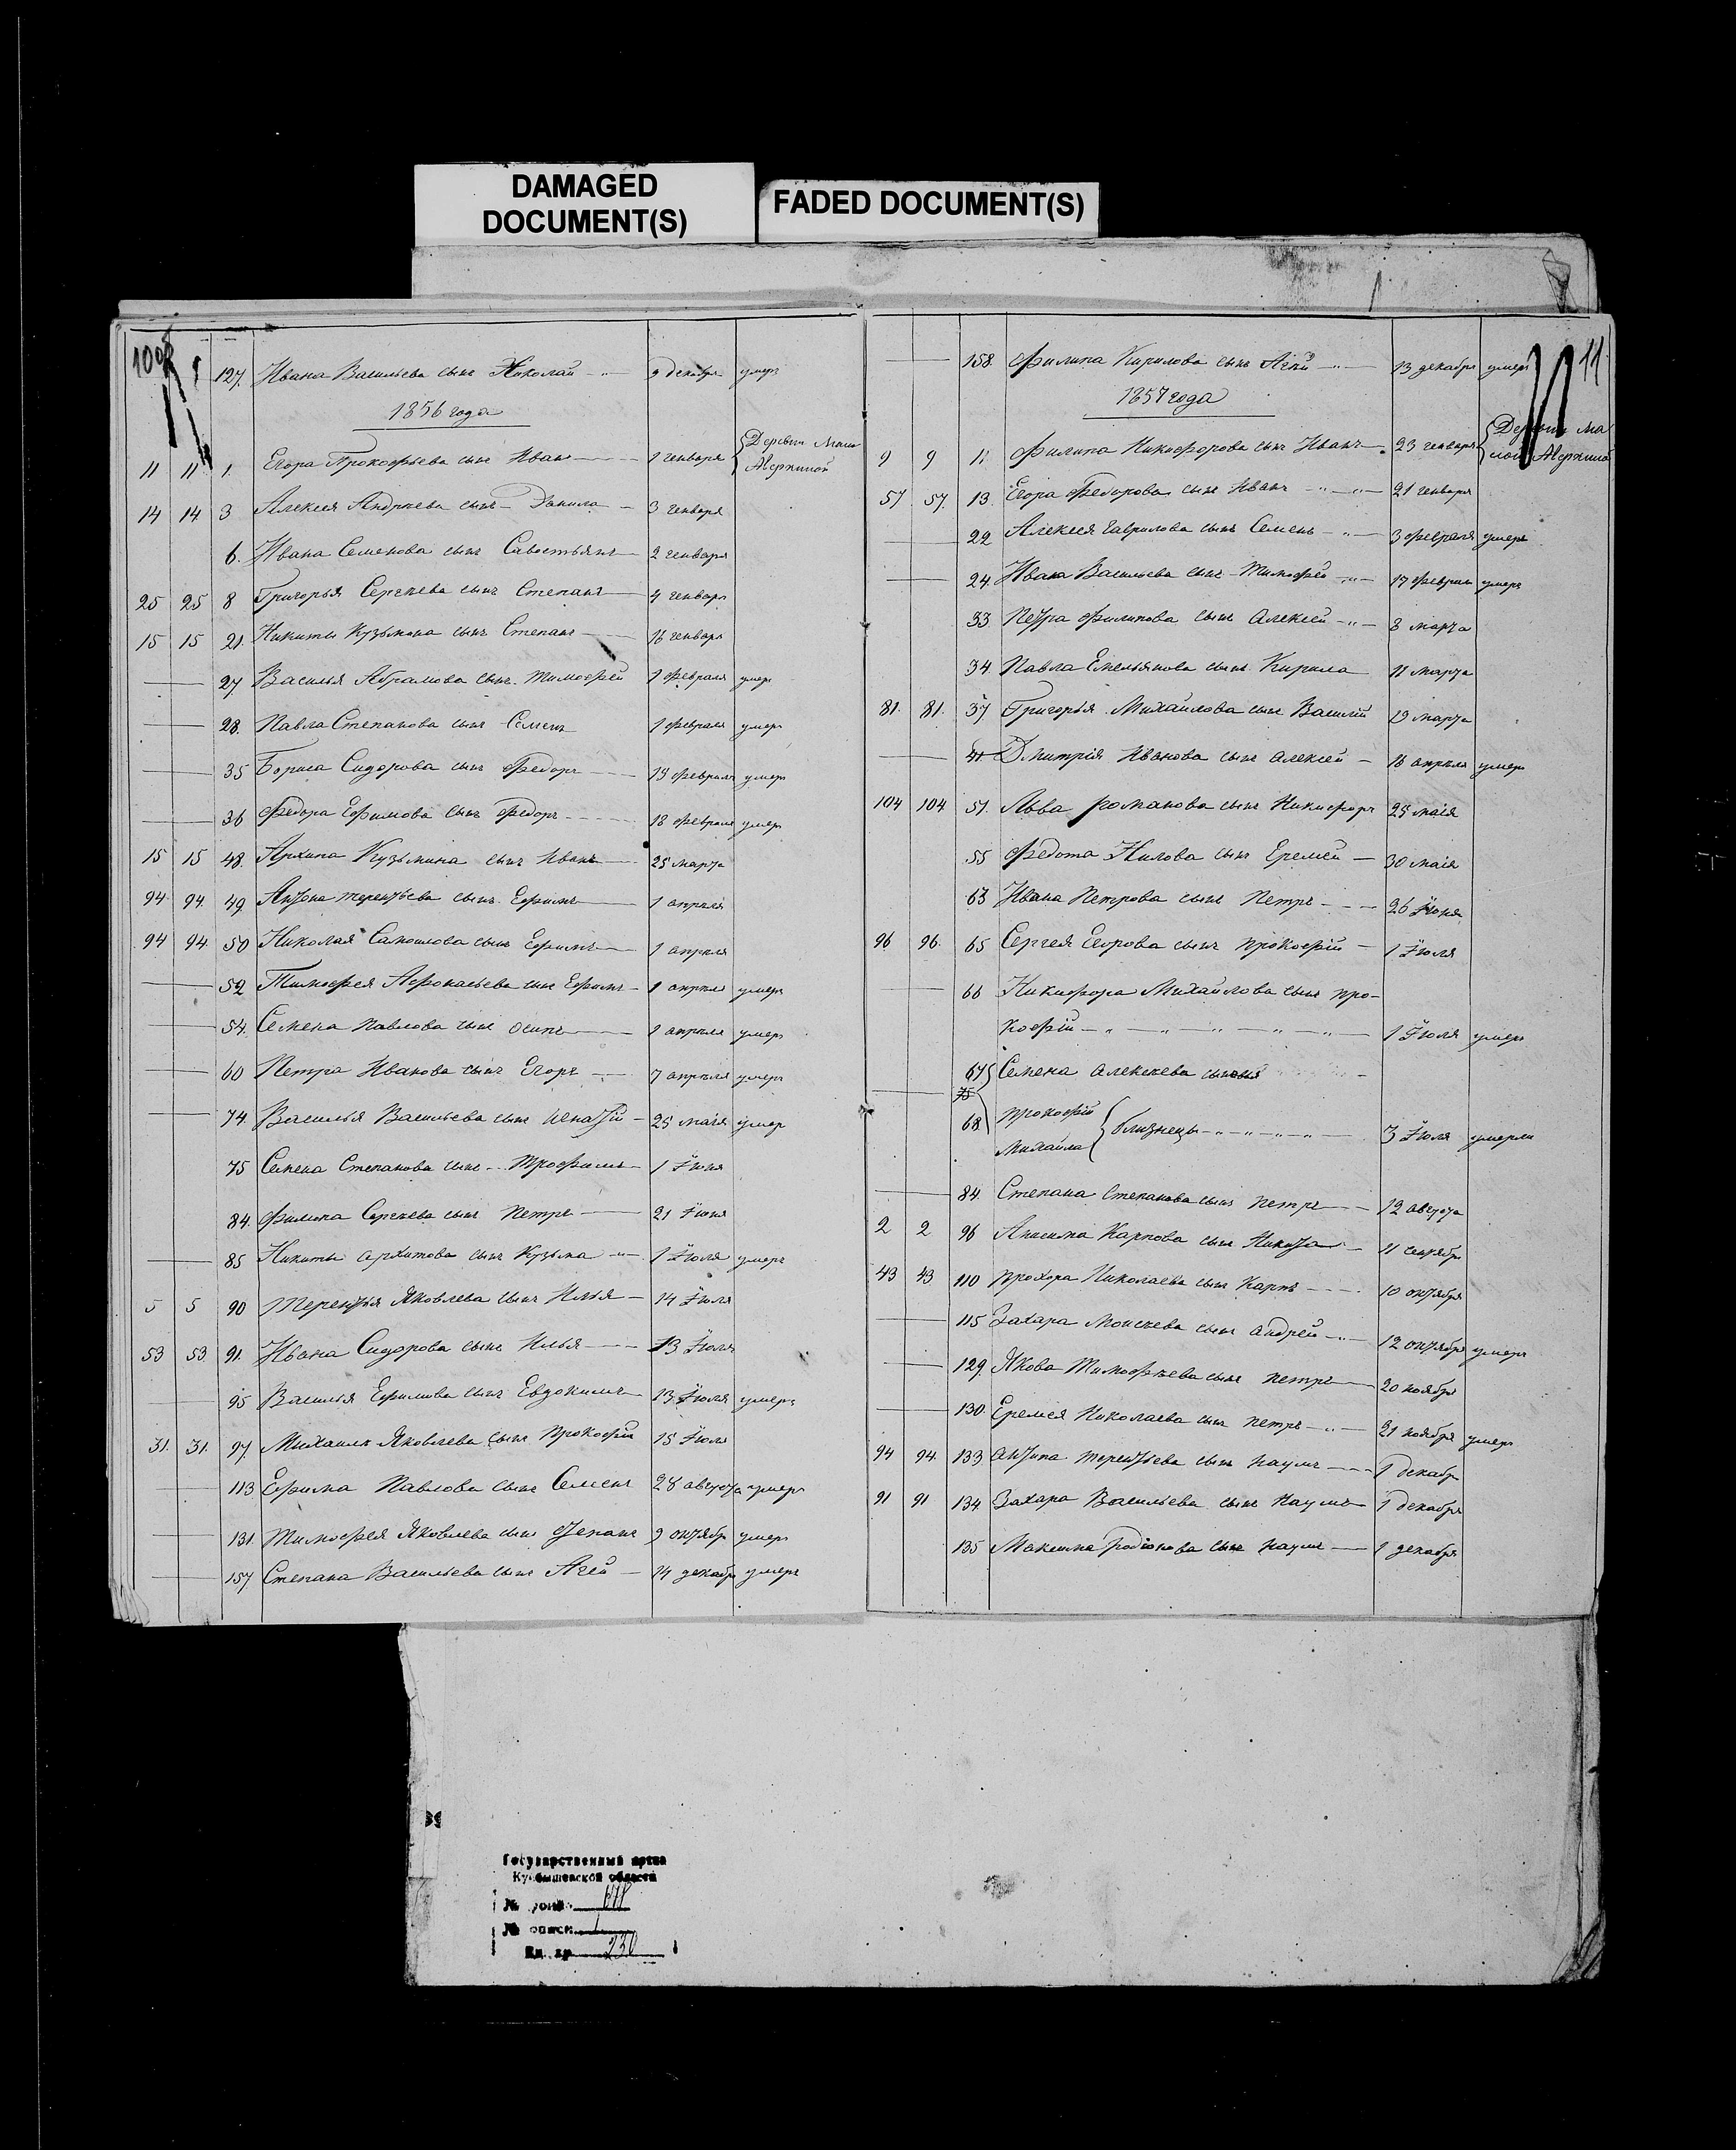 DAMAGED
DOCUMENT(S)
FADED DOCUMENT(S)
127. Ивана Васильева сынъ Николай 9 декабря умеръ
1856 года
11 11 1. Егора Прокофьева сынъ Иванъ 1 генваря Деревни Мало
Аверкиной
14 14 3 Алексея Андреева сынъ Данила 3 генваря
6. Ивана Семенова сынъ Савостьянъ 2 генваря
25 25 8 Григорья Сергеева сынъ Степанъ 4 генваря
15 15 21. Никиты Кузьмина сынъ Степанъ 16 генваря
27 Василья Абрамова сынъ Тимофей 1 февраля умеръ
28. Павла Степанова сынъ Семенъ 1 февраля умеръ
35 Бориса Сидорова сынъ Федоръ 19 февраля умеръ
36 Федора Ефимова сынъ Федоръ 18 февраля умеръ
15 15 48. Архипа Кузьмина сынъ Иванъ 25 марта
94 94 49 Антона Терентьева сынъ Ефимъ 1 апреля
94 94 50 Николая Самойлова сынъ Ефимъ 1 апреля
52 Тимофея Афонасьева сынъ Ефимъ 1 апреля умеръ
54. Семена Павлова сынъ Осипъ 1 апреля умеръ
60 Петра Иванова сынъ Егоръ 7 апреля умеръ
74. Василья Васильева сынъ Игнатій 25 маія умеръ
75 Семена Степанова сынъ Трофимъ 1 Іюня
84. Филипа Сергеева сынъ Петръ 21 Іюня
85 Никиты Архипова сынъ Кузьма 1 Іюля умеръ
5 5 90 Терентья Яковлева сынъ Илья 14 Іюля
53 53 91. Ивана Сидорова сынъ Илья 13 Іюля
95 Василья Ефимова сынъ Евдокимъ 13 Іюля умеръ
31. 31. 97. Михаила Яковлева сынъ Прокофій 15 Іюля
113 Ефима Павлова сынъ Семенъ 28 августа умеръ
131. Тимофея Яковлева сынъ Степанъ 9 октября умеръ
157 Степана Васильева сынъ Агей 14 декабря умеръ
11.
158. Филипа Кирилова сынъ Агей 13 декабря умеръ
1857 года
9 9 11 Филипа Никифорова сынъ Иванъ 23 генваря Деревни Ма
лой Аверкиной
57 57. 13. Егора Федорова сынъ Иванъ 21 генваря
22 Алексея Гаврилова сынъ Семенъ 3 февраля умеръ
24. Ивана Васильева сынъ Тимофей 17 февраля умеръ
33. Петра Филипова сынъ Алексей 8 марта
34. Павла Емельянова сынъ Кирила 11 марта
81. 81. 37 Григорья Михайлова сынъ Василій 19 марта
41 Дмитрія Иванова сынъ Алексей 16 апреля умеръ
104 104. 51. Льва Романова сынъ Никифоръ 25 маія
55 Федота Нилова сынъ Еремей 30 маія
63 Ивана Петрова сынъ Петръ 26 Іюня
96 96. 65 Сергея Егорова сынъ Прокофій 1 Іюля
66 Никифора Михайлова сынъ Про-
кофій 1 Іюля умеръ
67 Семена Алексеева сыновья
75
68 Прокофій
Михаила близнецы 3 Іюля умерли
84. Степана Степанова сынъ Петръ 12 августа
2 2 96 Анисима Карпова сынъ Никита 11 сентября
43 43 110 Прохора Николаева сынъ Карпъ 10 октября
115 Захара Моисеева сынъ Андрей 12 октября умеръ
129. Якова Тимофеева сынъ Петръ 20 ноября
130. Еремея Николаева сынъ Петръ 21 ноября умеръ
94 94. 133 Антона Терентьева сынъ Наумъ 1 декабря
91 91 134. Захара Васильева сынъ Наумъ 1 декабря
135 Максима Родіонова сынъ Наумъ 1 декабря
Государственный архив
Куйбышевской области
№ фонда
№ описи 1
Ед. хр. 230